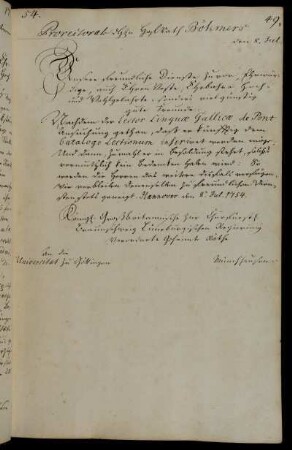 54.
49.
Prorectorat des Hln Hofrath Böhmers
den 8. Jul.
Unsere freundliche Dienste zuvor,
dige, und Ehrn Veste, Ehrbahre Hoch-
und Wohlgelahrte, günstig
gute Freunde.
Nachdem der Lector Linguæ Gallicæ de Pont
Ansuchung gethan, daß er künfftig dem
Catalogo Lectionum inserirt werden möge,
Und dann zumahlen in Besoldung stehet, solches
kein Bedencken haben wird; So
werden die Herren das weitere deshalb verfügen,
Wir verbleiben denenselben zu freundlichen Dien-
sten stets geneigt. Hannover den 8. Jul. 1754.
Königl. Großbritannische zur Churfürstl.
Braunschweig Lüneburgischen Regierung
Verordnete Geheimte Räthe
An die
Universitæt zu Göttingen
Münchhausen